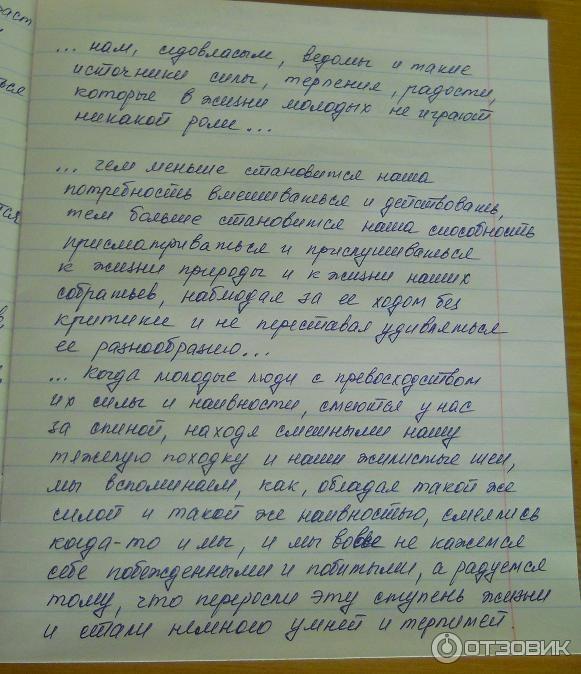 ... нам, седовласым, ведомы и такие
источники силы, терпения, радости,
которые в жизни молодых не играют
никакой роли...
... чем меньше становится наша
потребность вмешиваться и действовать,
тем больше становится наша способность
присматрываться и прислушиваться
к жизни природы и к жизни наших
собратьев, наблюдая за ее ходом без
критики и не переставая удивляться
ее разнообразию...
... когда молодые люди с превосходством
их силы и наивности, смеются у нас
за спиной, находя смешными нашу
тяжелую походку и наши жилистые шеи,
мы вспоминаем, как, обладая такой же
силой и такой же наивностью, смеялись
когда-то и мы, и мы вовсе не кажемся
себе побежденными и побитыми, а радуемся
тому, что переросли эту ступень жизни
и стали немного умней и терпимей
ОТЗОВИК